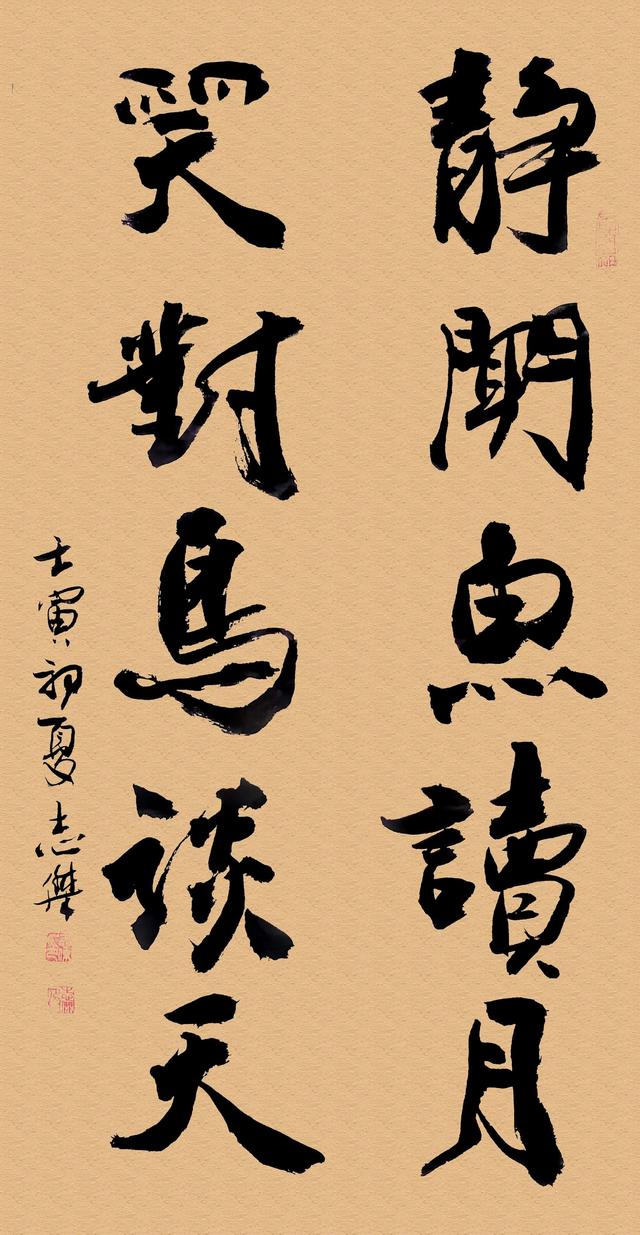 静聞魚讀月
笑對鳥談天
壬寅初夏志傑